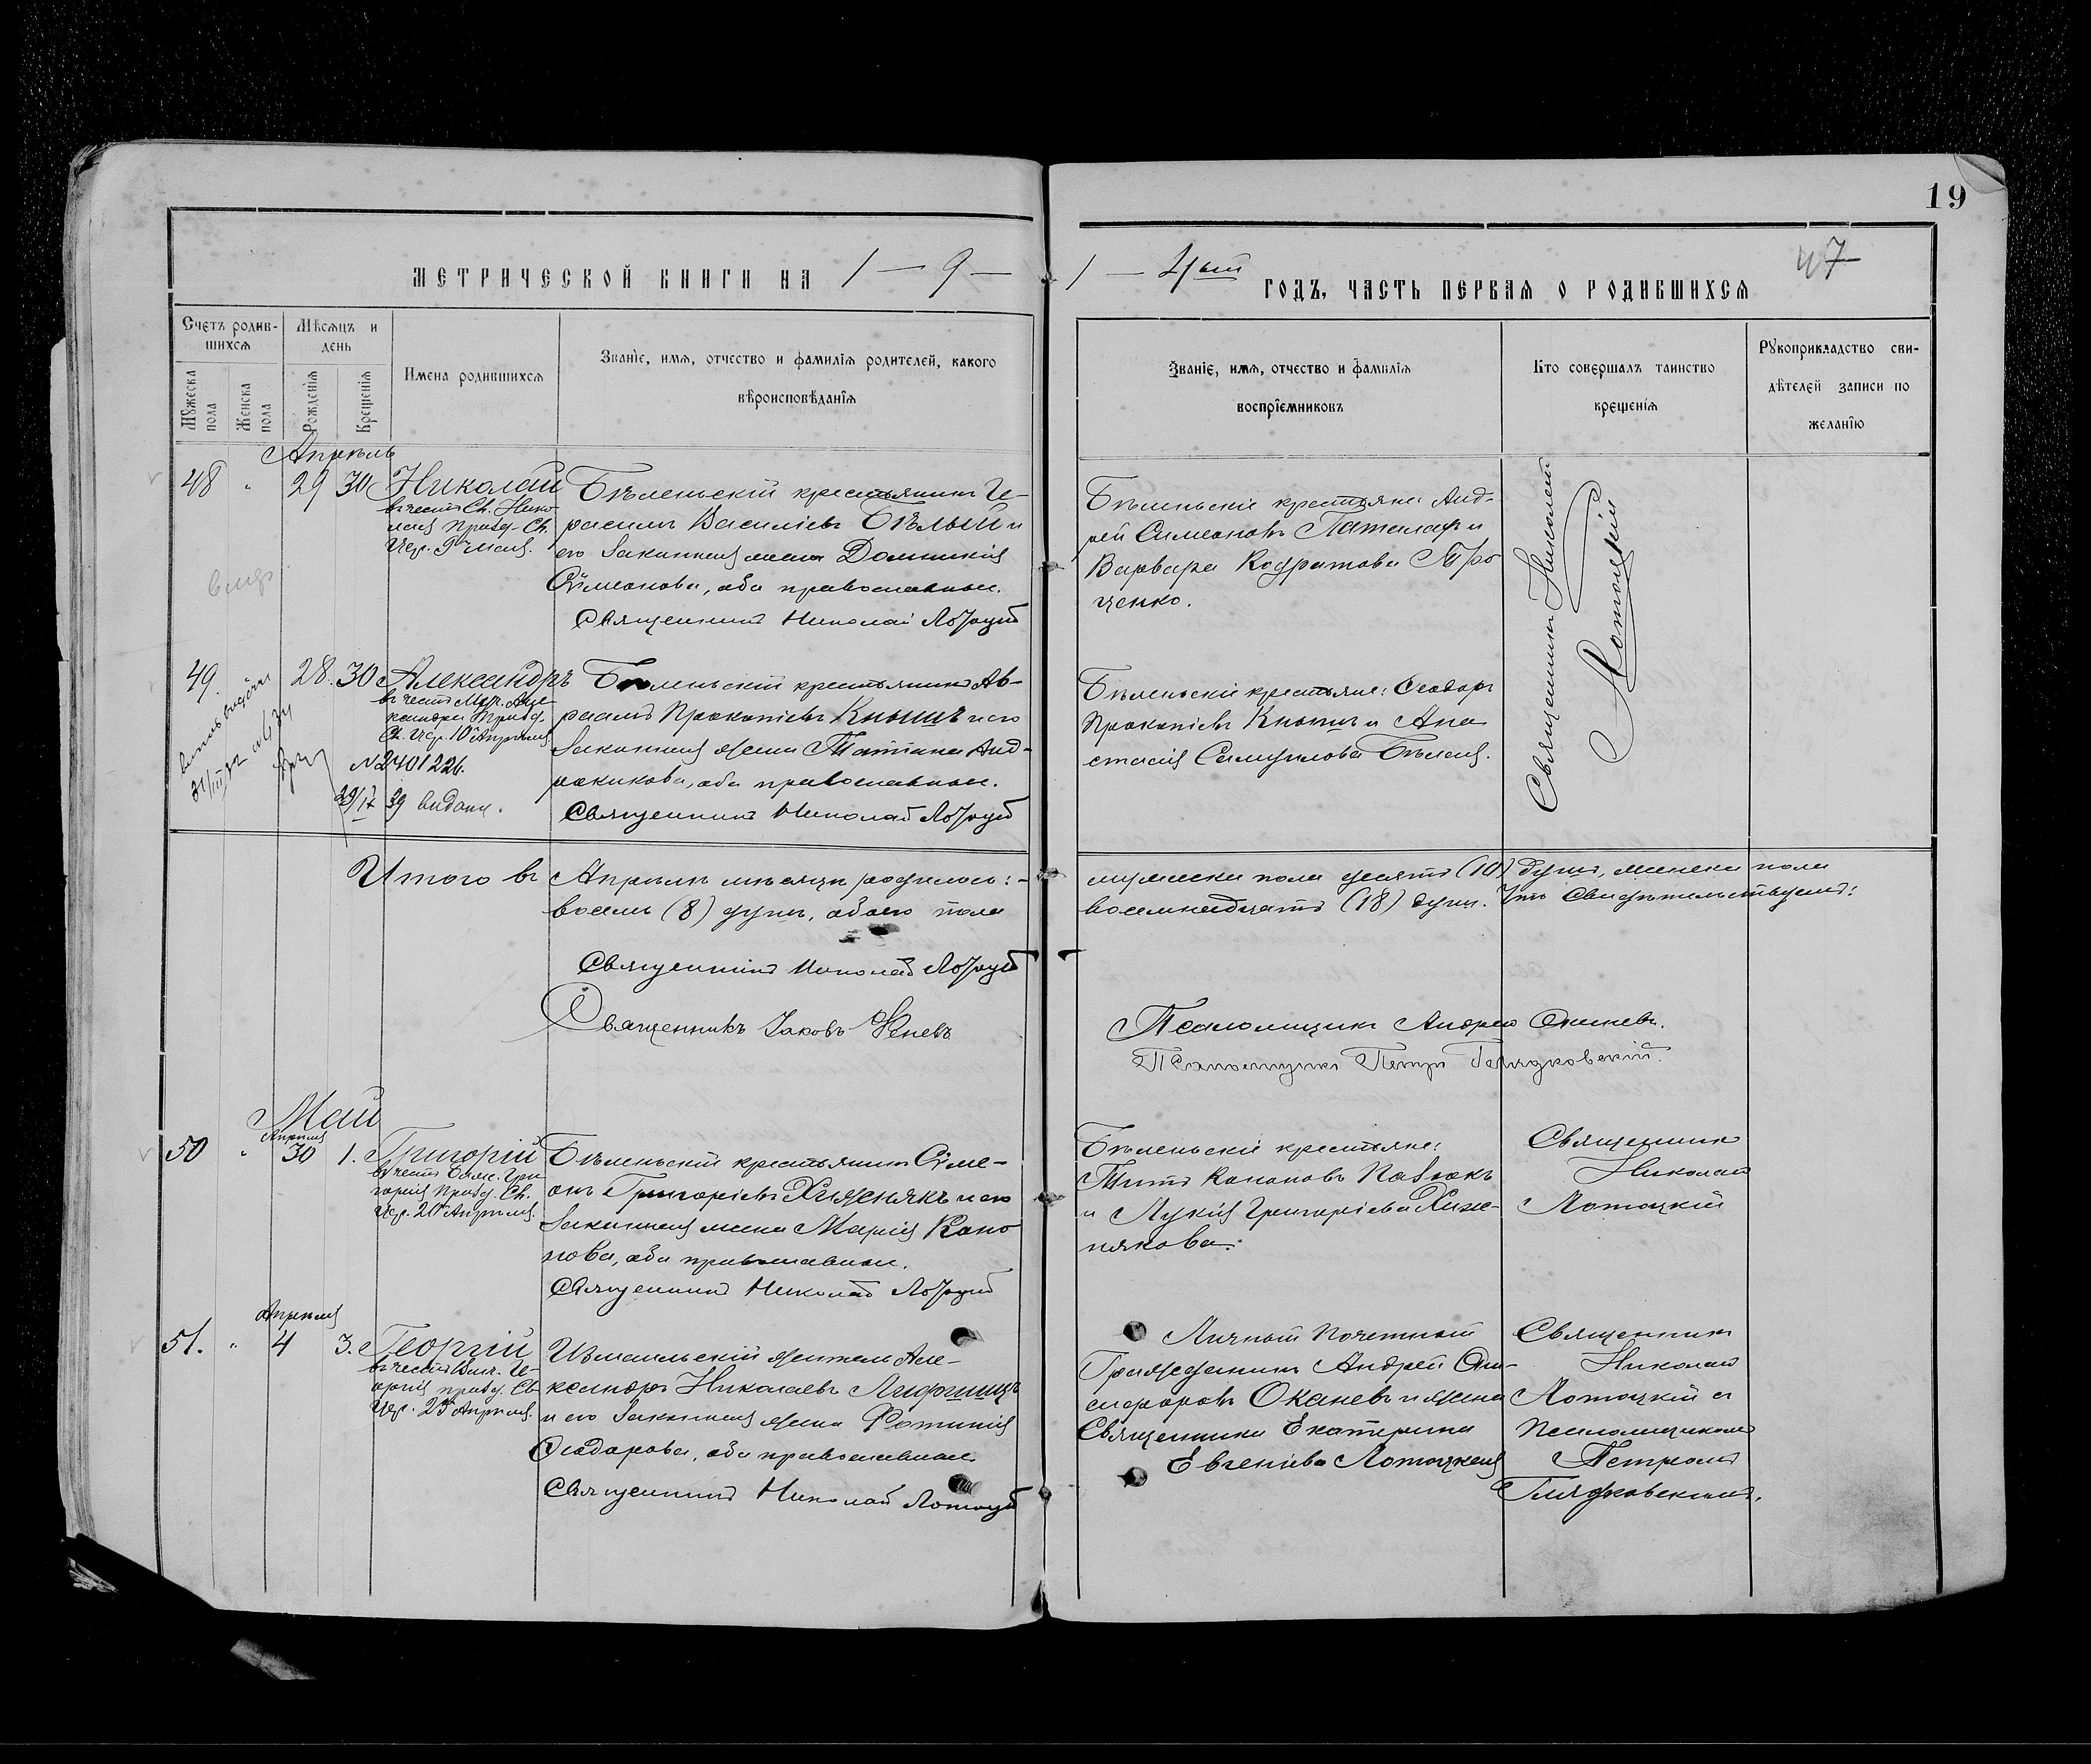 19
47
МЕТРИЧЕСКОЙ КНИГИ НА 1 — 9 —
1 — 4ый ГОДЪ, ЧАСТЬ ПЕРВАЯ О РОДИВШИХСЯ
Счетъ родив-
шихся
Мужеска пола
Женска пола
Мѣсяцъ и
день
Рожденія
Крещенія
Имена родившихся
Званіе, имя, отчество и фамилія родителей, какого
вѣроисповѣданія
Званіе, имя, отчество и фамилія
воспріемниковъ
Кто совершалъ таинство
крещенія
Рукоприкладство сви-
дѣтелей записи по
желанію
Апрѣль
48 " 29 30 Николай
въ честь Св. Нико-
лая празд. Св.
Цер. 9го мая.
Бѣленьскій крестьянинъ Ге-
расимъ Василіевъ Бѣлый и
его законная жена Домникія
Сѵмеонова, оба православные.
Священникъ Николай Лотоцкій
Бѣленьскіе крестьяне Анд-
рей Симеоновъ
Варвара Кодратова Тро
ценко.
Священникъ Николай
Лотоцкій
49. 28. 30 Александръ
въ честь Муч. Алек-
сандра празд.
Св. Цер. 10го Апрѣля
N2401226.
39 видано.
Бѣленьскій крестьянинъ Ав-
раамъ Прокопіевъ Кнышъ и его
законная жена Татіана Анд-
роникова, оба православные.
Священникъ Николай Лотоцкій
Бѣленьскіе крестьяне: Ѳеодоръ
Прокопіевъ Кнышъ и Ана
стасія Самуилова Бѣлая.
Итого въ Апрѣлѣ мѣсяцѣ родилось: -
мужеска пола десять (10) душъ, женска пола
восемь (8) душъ, обоего пола
восемнадцать (18) душъ. Что свидѣтельствуемъ:
Священникъ Николай Лотоцкій
Священникъ Іаковъ
Псаломщикъ Андрей Оканевъ.
Псаломщикъ Петръ Глядковскій.
Май
50 " Апрѣля 30 1. Григорій
въ честь Григорія празд. Св.
Цер. 20го Апрѣля.
Бѣленьскій крестьянинъ Сѵме-
онъ Григоріевъ Хижнякъ и его
законная жена Марія Коно
нова, оба православные.
Священникъ Николай Лотоцкій
Бѣленьскіе крестьяне:
Титъ Кононовъ Павлюкъ
и Лукія Григоріева Хиж-
някова.
Священникъ
Николай
Лотоцкій
Апрѣля
51. " 4 3. Георгій
въ честь Вмч. Ге-
оргія празд. Св.
Цер. 23го Апрѣля.
Измаильскій житель Але-
ксандръ Николаевъ
и его законная жена Фотинія
Ѳеодорова, оба православные.
Священникъ Николай Лотоцкій
Личный почетный
Гражданинъ Андрей Они-
сифоровъ Оканевъ и жена
Священника Екатерина
Евгеніева Лотоцкая
Священникъ
Николай
Лотоцкій съ
Псаломщикомъ
Петромъ
Глядковскимъ.